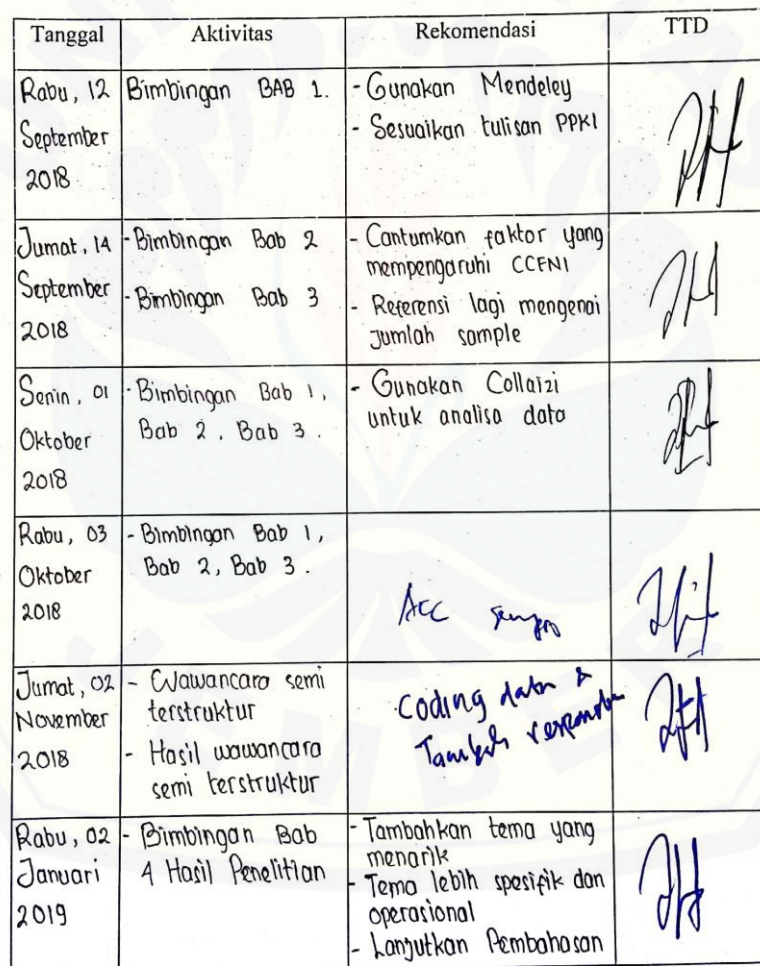 Tanggal Aktivitas Rekomendasi TTD
Rabu, 12
September
2018
Bimbingan BAB 1.
- Gunakan Mendeley
- Sesuaikan tulisan PPKI
Jumat, 14
September
2018
- Bimbingan Bab 2
- Bimbingan Bab 3
- Cantumkan faktor yang
mempengaruhi CCFNI
- Referensi lagi mengenai
Jumlah sample
Senin, 01
Oktober
2018
- Bimbingan Bab 1,
Bab 2, Bab 3.
- Gunakan Collaizi
untuk analisa data
Rabu, 03
Oktober
2018
- Bimbingan Bab 1,
Bab 2, Bab 3.
Acc sempro
Jumat, 02
November
2018
- Wawancara semi
terstruktur
- Hasil wawancara
semi terstruktur
Coding data &
Tambah responden
Rabu, 02
Januari
2019
- Bimbingan Bab
4 Hasil Penelitian
- Tambahkan tema yang
menarik
- Tema lebih spesifik dan
operasional
- Lanjutkan Pembahasan